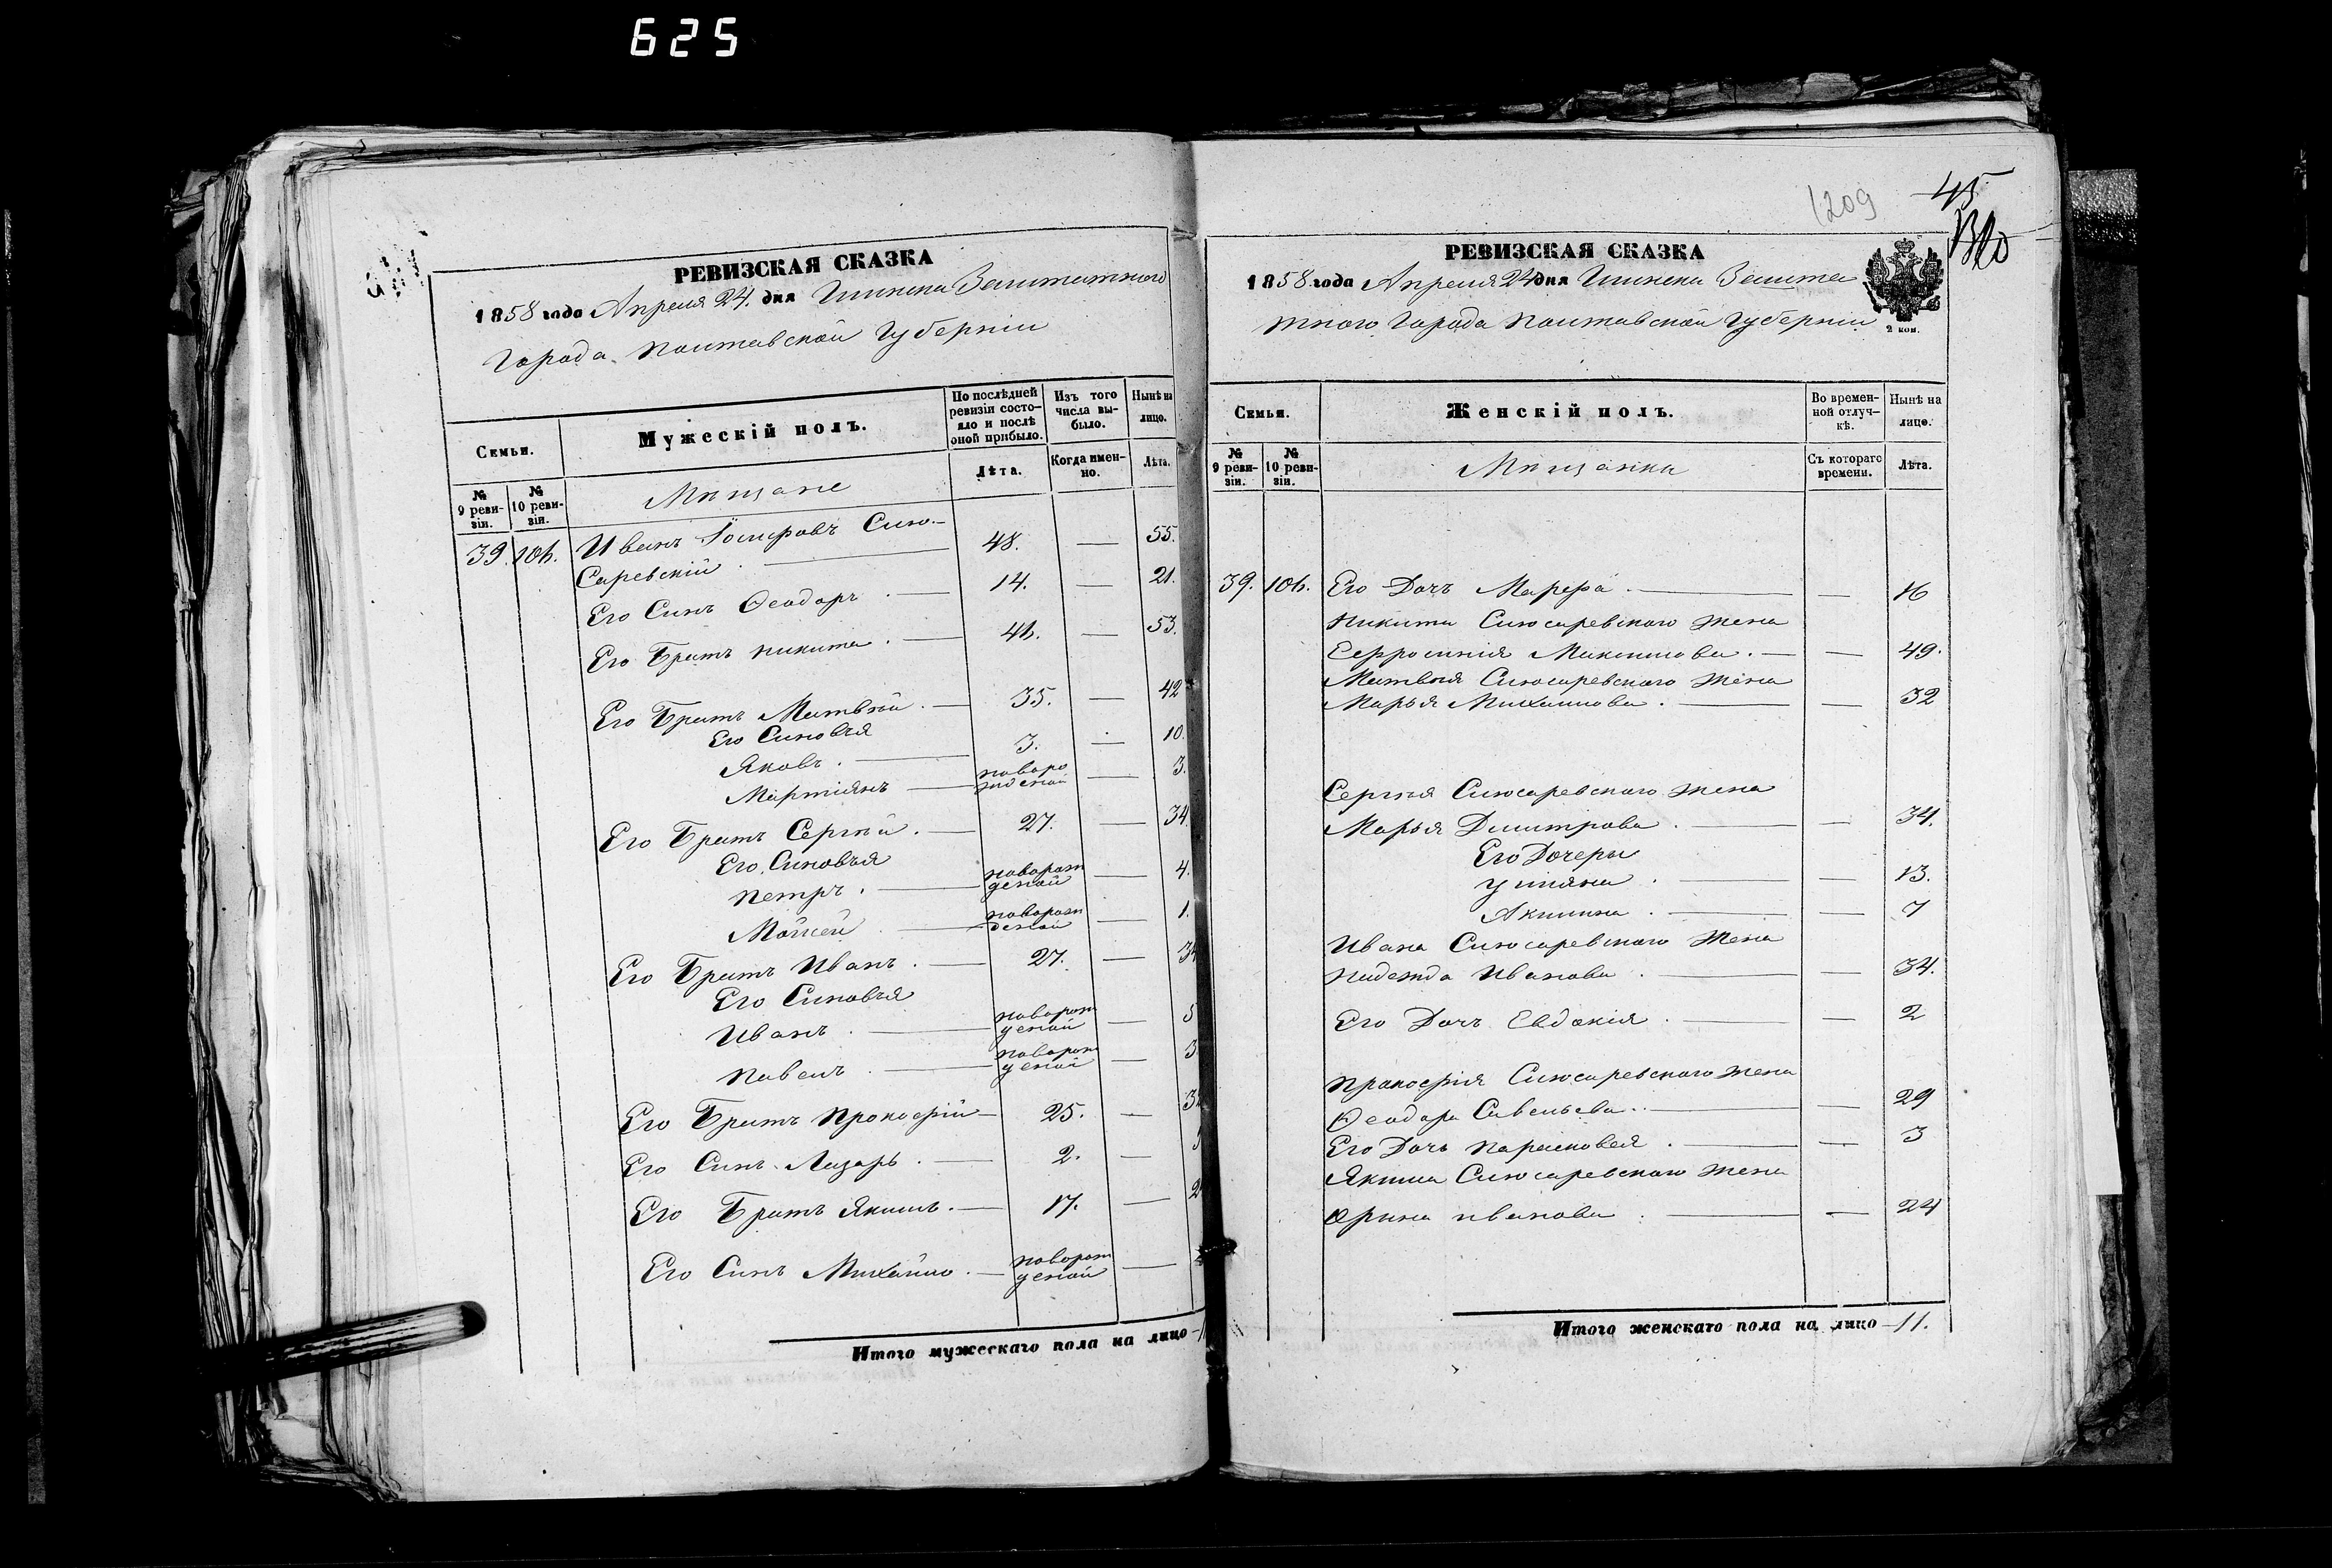 625
РЕВИЗСКАЯ СКАЗКА
1858 года Апреля 24. дня Глинска Заштатного
города Полтавской Губерніи
Семьи.
Мужескій полъ.
По послѣдней ревизіи состояло и послѣ оной прибыло.
Изъ того числа выбыло.
Нынѣ на лицо.
№ 9 ревизіи.
№ 10 ревизіи.
Мѣщане
Лѣта.
Когда именно.
Лѣта.
39. 106. Иванъ Іосифовъ Слю-
саревскій 48. — 55.
Его Синъ Ѳеодоръ 14. — 21.
Его Братъ Никита 46. — 53.
Его Братъ Матвѣй 35. — 42
Его Синовъя
Яковъ 3. — 10.
Мартіянъ новорожденой — 3.
Его Братъ Сергѣй 27. — 34.
Его Синовъя
Петръ новорожденой — 4.
Мойсей новорожденой — 1.
Его Братъ Иванъ 27. — 34
Его Синовъя
Иванъ новорожденой — 5
Павелъ новорожденой — 3
Его Братъ Прокофій 25. —
Его Синъ Лазарь 2. —
Его Братъ Якимъ 17. —
Его Синъ Михайло новорожденой —
Итого мужескаго пола на лицо
1209
45
РЕВИЗСКАЯ СКАЗКА
1858 года Апреля 24 дня Глинска Зашта
тного города Полтавской Губерніи
2 коп.
Семьи.
Женскій полъ.
Во временной отлучкѣ.
Нынѣ на лицо.
№ 9 ревизіи.
№ 10 ревизіи.
Мѣщанки
Съ котораго времени.
Лѣта.
39. 106. Его Дочъ Марфа — 16
Никиты Слюсаревского жена
Ефросинія Максимова — 49.
Матвѣя Слюсаревского жена
Марья Михаилова — 32
Сергѣя Слюсаревского жена
Марья Дмитрова — 34.
Его Дочеры
Уліяна — 13.
Акилина — 7
Ивана Слюсаревского Жена
Надежда Иванова — 34.
Его Дочъ Евдокія — 2
Прокофія Слюсаревского жена
Ѳеодора Савельева — 29
Его Дочь Парасковея — 3
Якима Слюсаревского жена
Орина Иванова — 24
Итого женскаго пола на лицо 11.